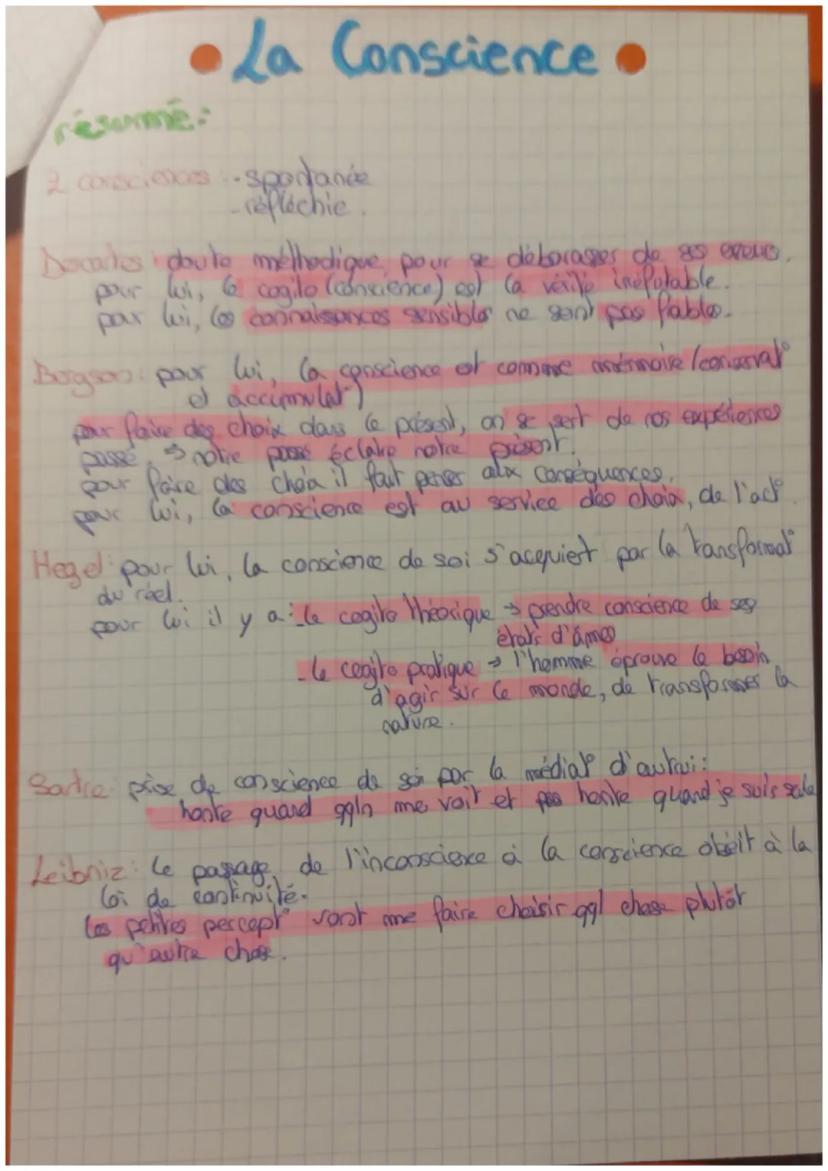 La Conscience
résumé:
2 consciences : - spontanée
- réfléchie.
Descartes : doute méthodique, pour se débarasser de ses erreurs.
pour lui, le cogito (conscience) est la vérité irréfutable.
pour lui, les connaissances sensibles ne sont pas fiables.
Bergson : pour lui, la conscience est comme mémoire (conservat°
et accumulat°)
pour faire des choix dans le présent, on se sert de nos expériences
passé → notre passé éclaire notre présent.
pour faire des choix il faut penser aux conséquences.
pour lui, la conscience est au service des choix, de l'act°
Hegel : pour lui, la conscience de soi s'acquiert par la transformat°
du réel.
pour lui il y a : - le cogito théorique → prendre conscience de ses
états d'âmes
- le cogito pratique → l'homme éprouve le besoin
d'agir sur le monde, de transformer la
nature.
Sartre : prise de conscience de soi par la médiat° d'autrui :
honte quand qqln me voit et pas honte quand je suis seule
Leibniz : le passage de l'inconscience à la conscience obéit à la
loi de continuité.
Les petites percept° vont me faire choisir qql chose plutôt
qu'autre chose.